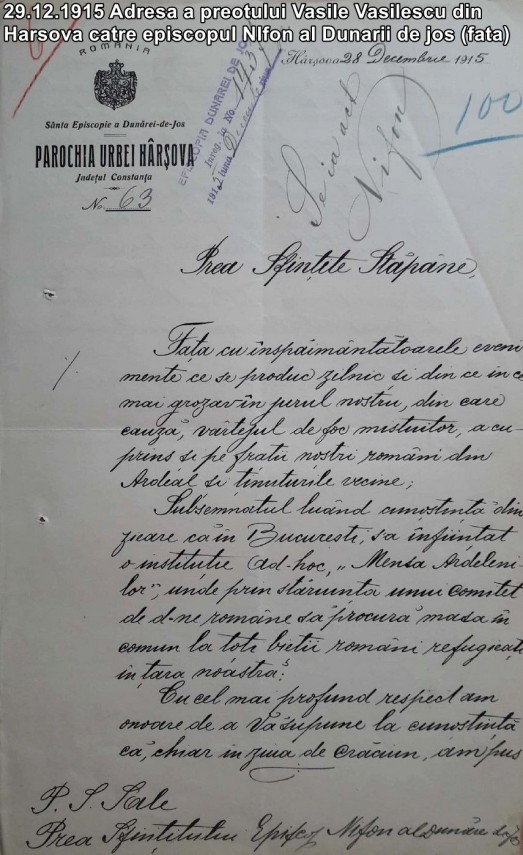 29.12.1915 Adresa a preotului Vasile Vasilescu din
Harsova catre episcopul NIfon al Dunarii de jos (fata)
ROMANIA
Hârșova 28 Decembrie 1915
Sânta Episcopie a Dunărei-de-Jos
PAROCHIA URBEI HÂRȘOVA
Județul Constanța
No. 63
EPISCOPIA DUNĂREI DE JOS
Se ia act
Nifon
100
Prea Sfințite Stăpâne,
Fața cu înspăimântătoarele eveni
mente ce se produc zilnic si din ce in ce
mai grozav în jurul nostru, din care
cauză, vârtejul de foc mistuitor, a cu-
prins si pe fratii nostri români din
Ardeal si tinuturile vecine;
Subsemnatul luând cunostintă din
ziare că în Bucuresti, s'a înfiintat
o institutie ad-hoc, „Mensa Ardeleni-
lor", unde prin stăruinta unui comitet
de d-ne române să procură masa in
comun la toti bietii români refugiati
in țara noastră;
Cu cel mai profund respect am
onoare de a Vă supune la cunostintă
că, chiar in ziua de Crăciun, am pus
P. S. Sale
Prea Sfințitului Episcop Nifon al Dunărei de Jos